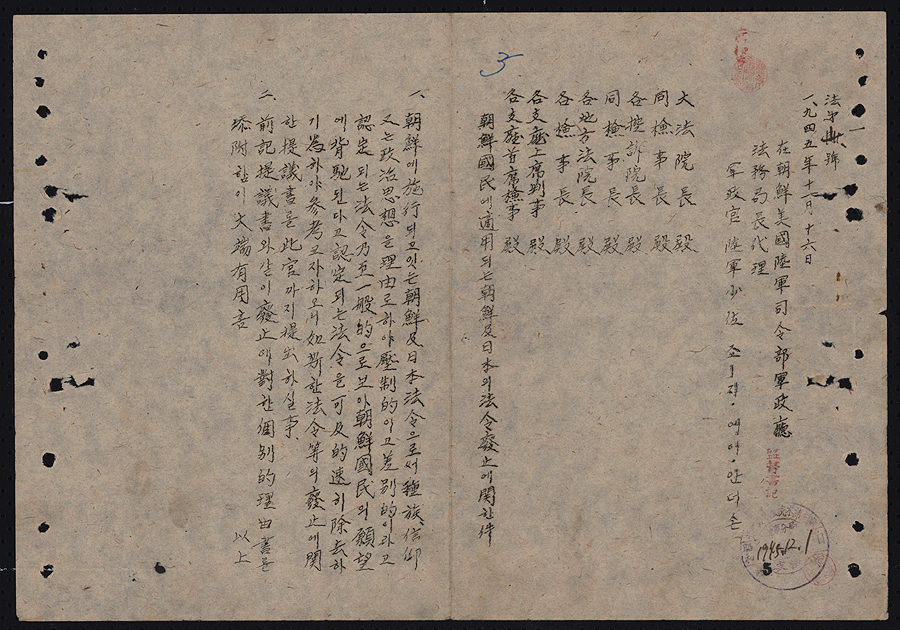 法第 號
一九四五年十一月十六日
在朝鮮美國陸軍司令部軍政廳
法務局長代理
軍政官 陸軍少佐 쪼-지·에이·안더슨
大法院長 殿
同檢事長 殿
各控訴院長 殿
同檢事長 殿
各地方法院長 殿
各檢事長 殿
各支廳上席判事 殿
各支廳首席檢事 殿
朝鮮國民에適用되는朝鮮及日本의法令廢止에關한件
一、朝鮮에施行되고있는朝鮮及日本法令으로써種族、信仰
又는政治思想을理由로하야壓制的이고差別的이라고
認定되는法令乃至一般的으로보아朝鮮國民의願望
에背馳된다고認定되는法令을可及的速히除去하
기爲하야參考코자하오니如斯한法令等의廢止에關
한提議書를此官까지提出하실事、
二、前記提議書와같이廢止에對한個別的理由書를
添附함이大端有用함
以上
監督書記
1945.12.1
5